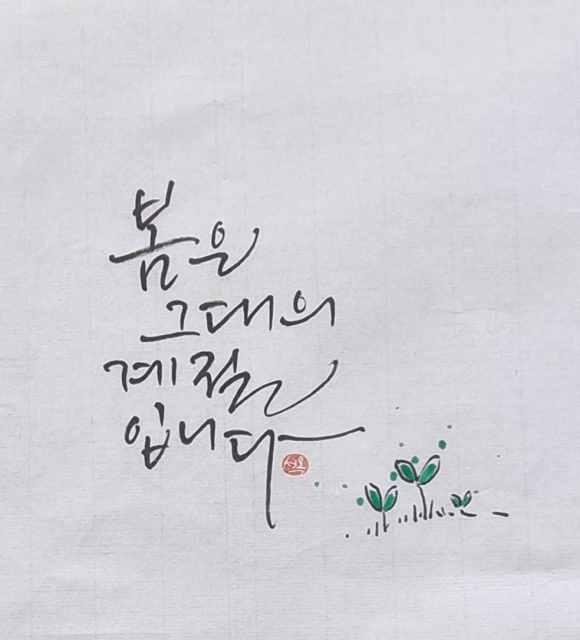 봄은
그대의
계절
입니다
선옥